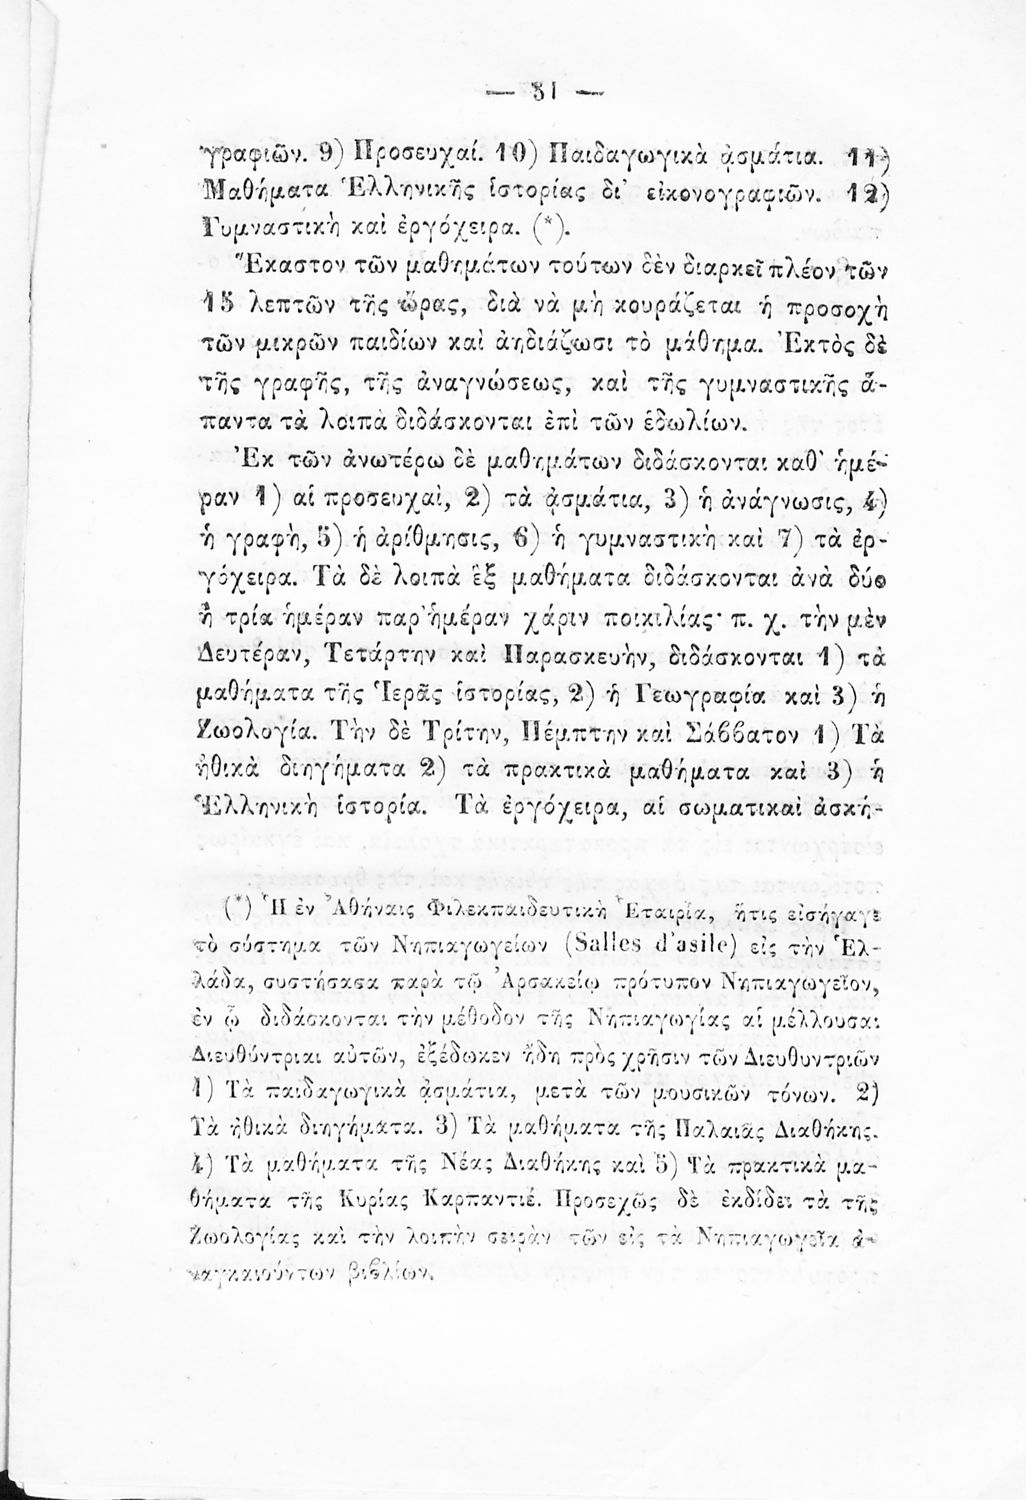 — 51 —
γραφιῶν. 9) Προσευχαί. 10) Παιδαγωγικὰ ᾀσμάτια. 11)
Μαθήματα Ἑλληνικῆς ἱστορίας δι’ εἰκονογραφιῶν. 12)
Γυμναστικὴ καὶ ἐργόχειρα. (*).
Ἕκαστον τῶν μαθημάτων τούτων δὲν διαρκεῖ πλέον τῶν
15 λεπτῶν τῆς ὥρας, διὰ νὰ μὴ κουράζεται ἡ προσοχὴ
τῶν μικρῶν παιδίων καὶ ἀηδιάζωσι τὸ μάθημα. Ἐκτὸς δὲ
τῆς γραφῆς, τῆς ἀναγνώσεως, καὶ τῆς γυμναστικῆς ἅ-
παντα τὰ λοιπὰ διδάσκονται ἐπὶ τῶν ἑδωλίων.
Ἐκ τῶν ἀνωτέρω δὲ μαθημάτων διδάσκονται καθ’ ἡμέ-
ραν 1) αἱ προσευχαὶ, 2) τὰ ᾀσμάτια, 3) ἡ ἀνάγνωσις, 4)
ἡ γραφὴ, 5) ἡ ἀρίθμησις, 6) ἡ γυμναστικὴ καὶ 7) τὰ ἐρ-
γόχειρα. Τὰ δὲ λοιπὰ ἓξ μαθήματα διδάσκονται ἀνὰ δύο
ἢ τρία ἡμέραν παρ’ ἡμέραν χάριν ποικιλίας· π. χ. τὴν μὲν
Δευτέραν, Τετάρτην καὶ Παρασκευὴν, διδάσκονται 1) τὰ
μαθήματα τῆς Ἱερᾶς ἱστορίας, 2) ἡ Γεωγραφία καὶ 3) ἡ
Ζωολογία. Τὴν δὲ Τρίτην, Πέμπτην καὶ Σάββατον 1) Τὰ
ἠθικὰ διηγήματα 2) τὰ πρακτικὰ μαθήματα καὶ 3) ἡ
Ἑλληνικὴ ἱστορία. Τὰ ἐργόχειρα, αἱ σωματικαὶ ἀσκή-
(*) Ἡ ἐν Ἀθήναις Φιλεκπαιδευτικὴ Ἑταιρία, ἥτις εἰσήγαγε
τὸ σύστημα τῶν Νηπιαγωγείων (Salles d’asile) εἰς τὴν Ἑλ-
λάδα, συστήσασα παρὰ τῷ Ἀρσακείῳ πρότυπον Νηπιαγωγεῖον,
ἐν ᾧ διδάσκονται τὴν μέθοδον τῆς Νηπιαγωγίας αἱ μέλλουσαι
Διευθύντριαι αὐτῶν, ἐξέδωκεν ἤδη πρὸς χρῆσιν τῶν Διευθυντριῶν
1) Τὰ παιδαγωγικὰ ᾀσμάτια, μετὰ τῶν μουσικῶν τόνων. 2)
Τὰ ἠθικὰ διηγήματα. 3) Τὰ μαθήματα τῆς Παλαιᾶς Διαθήκης.
4) Τὰ μαθήματα τῆς Νέας Διαθήκης καὶ 5) Τὰ πρακτικὰ μα-
θήματα τῆς Κυρίας Καρπαντιέ. Προσεχῶς δὲ ἐκδίδει τὰ τῆς
Ζωολογίας καὶ τὴν λοιπὴν σειρὰν τῶν εἰς τὰ Νηπιαγωγεῖα ἀ-
ναγκαιούντων βιβλίων.